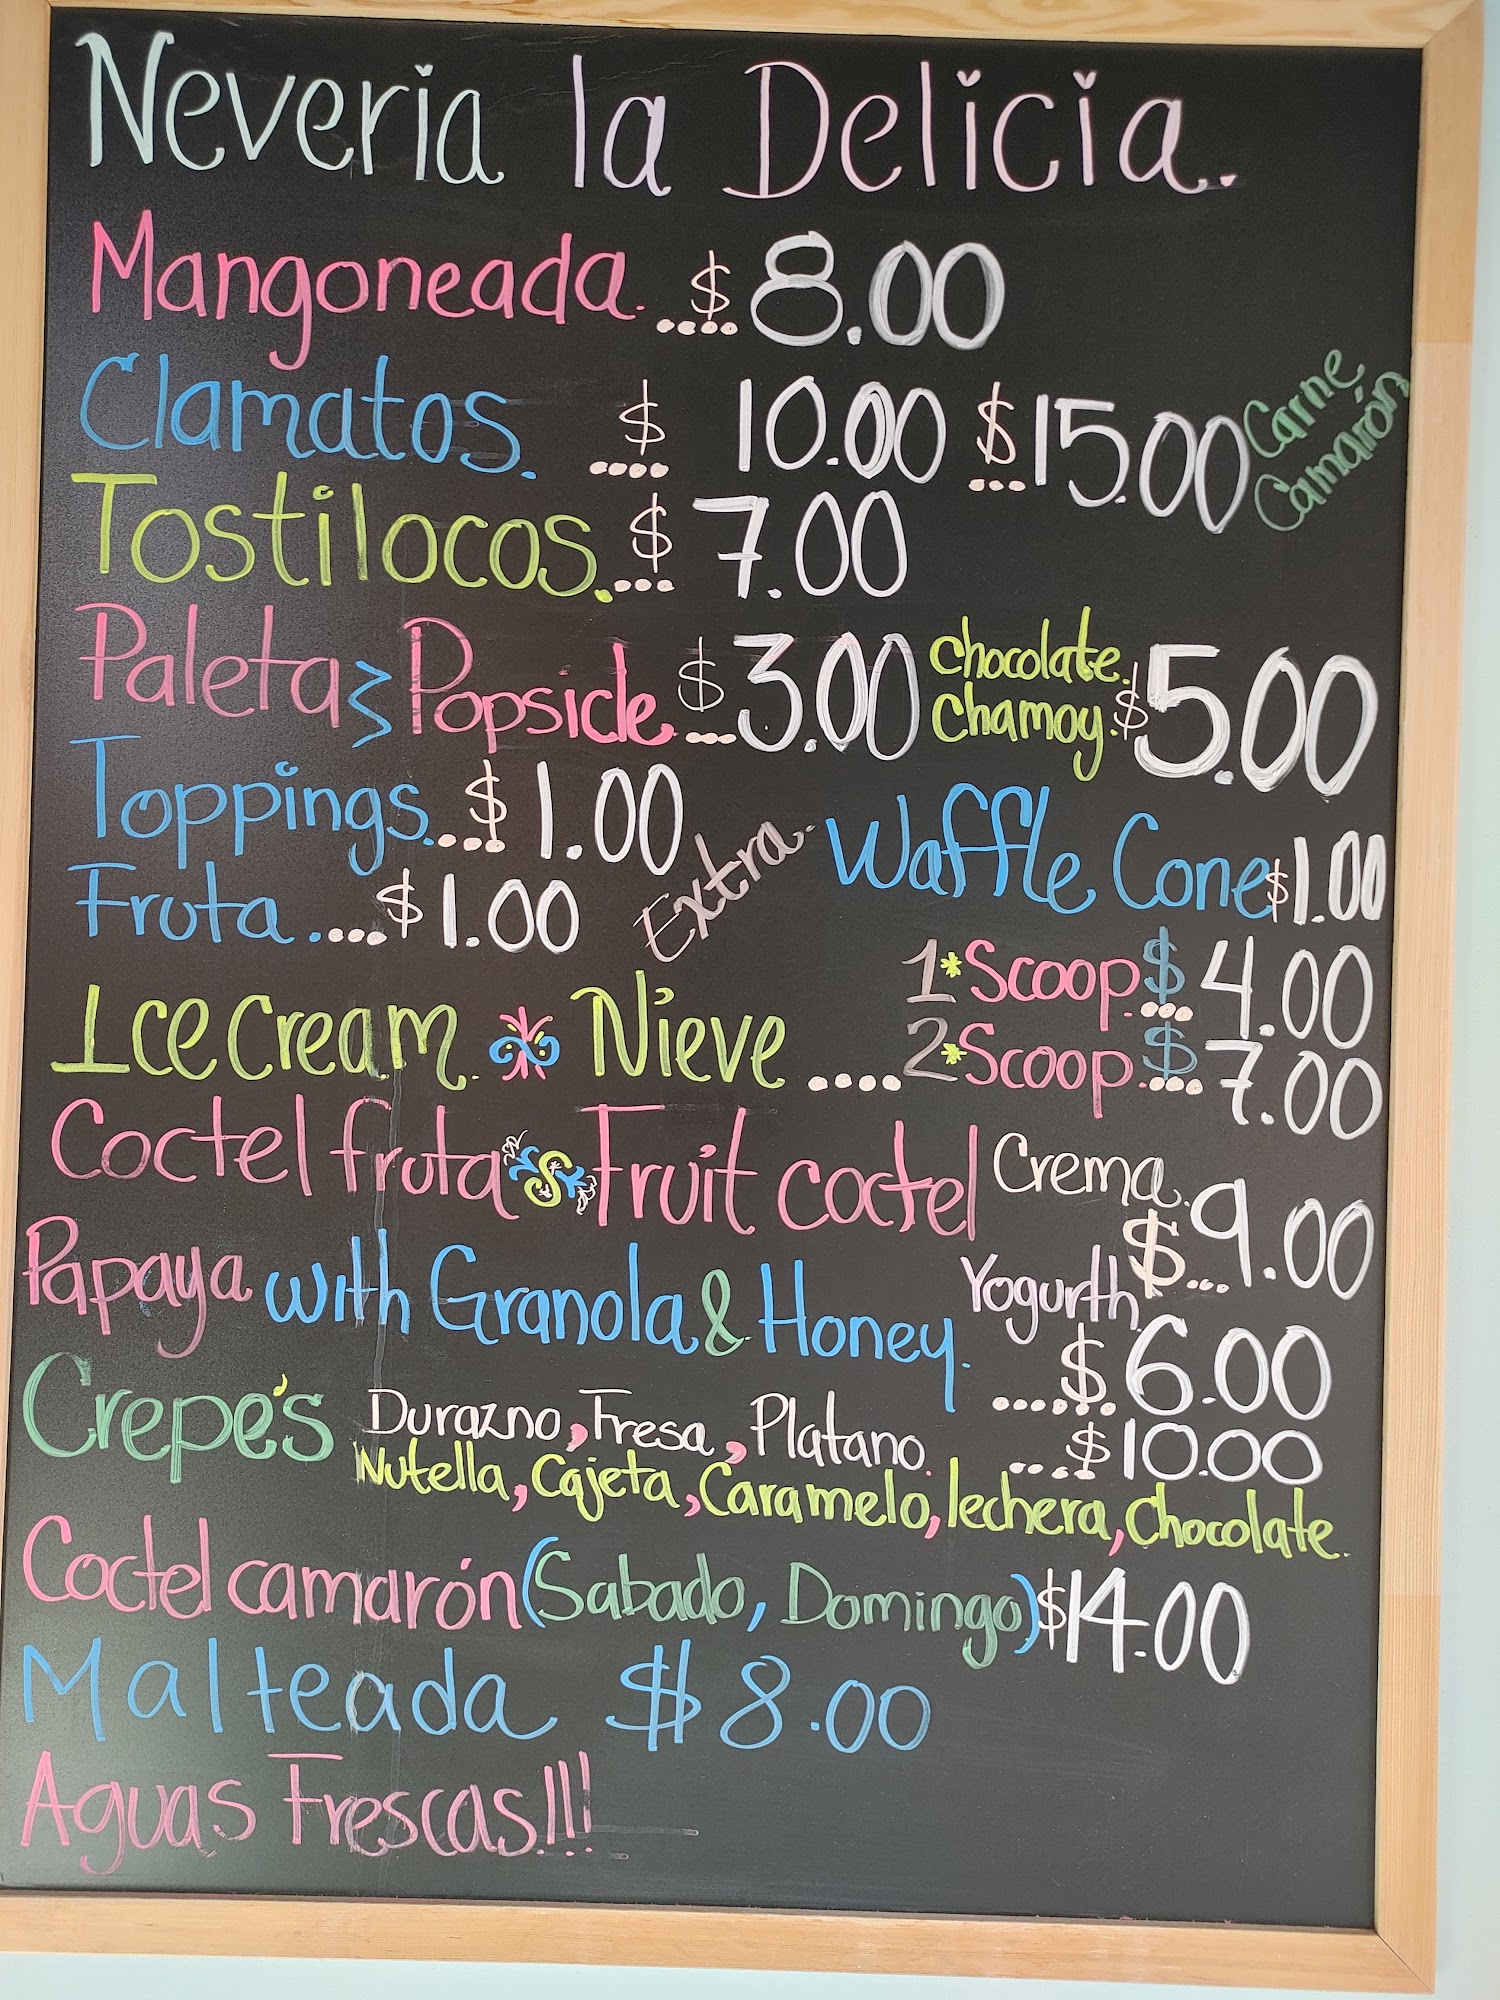 Neveria la Delicia.
Mangoneada. .... $8.00
Clamatos. .... $ 10.00 $...15.00 Carne, Camarón
Tostilocos. .... $ 7.00
Paleta Popsicle. $...3.00 Chocolate. Chamoy. $5.00
Toppings. ... $1.00 Extra. Waffle Cone $1.00
Fruta. ... $1.00
1*Scoop. $... 4.00
Ice Cream. Nieve .... 2*Scoop. $... 7.00
Coctel fruta Fruit coctel Crema. $... 9.00
Papaya with Granola & Honey. Yogurth .... $6.00
Crepe's Durazno, Fresa, Platano. .... $10.00
Nutella, Cajeta, Caramelo, lechera, Chocolate.
Coctel camarón (Sabado, Domingo) $14.00
Malteada $8.00
Aguas Frescas!!!